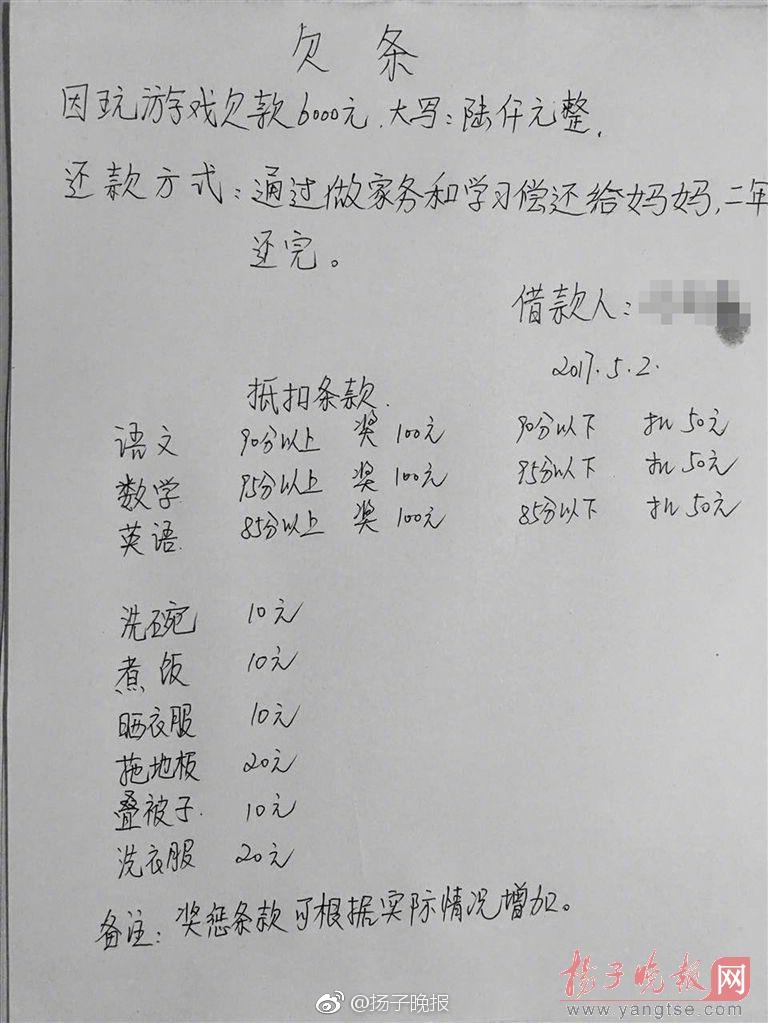 欠条
因玩游戏欠款6000元.大写:陆仟元整,
还款方式:通过做家务和学习偿还给妈妈,二年
还完。
借款人:
2017.5.2.
抵扣条款.
语文 90分以上 奖 100元 90分以下 扣 50元
数学 95分以上 奖 100元 95分以下 扣 50元
英语. 85分以上 奖 100元 85分以下 扣 50元
洗碗 10元
煮饭 10元
晒衣服 10元
拖地板 20元
叠被子. 10元
洗衣服 20元
备注:奖惩条款可根据实际情况增加。
扬子晚报网
@扬子晚报
www.yangtse.com